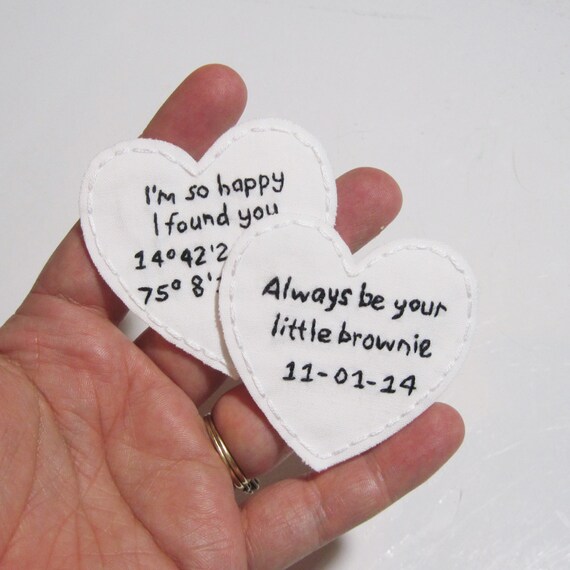 I'm so happy
I found you
14°42'2
75° 8'
Always be your
little brownie
11-01-14